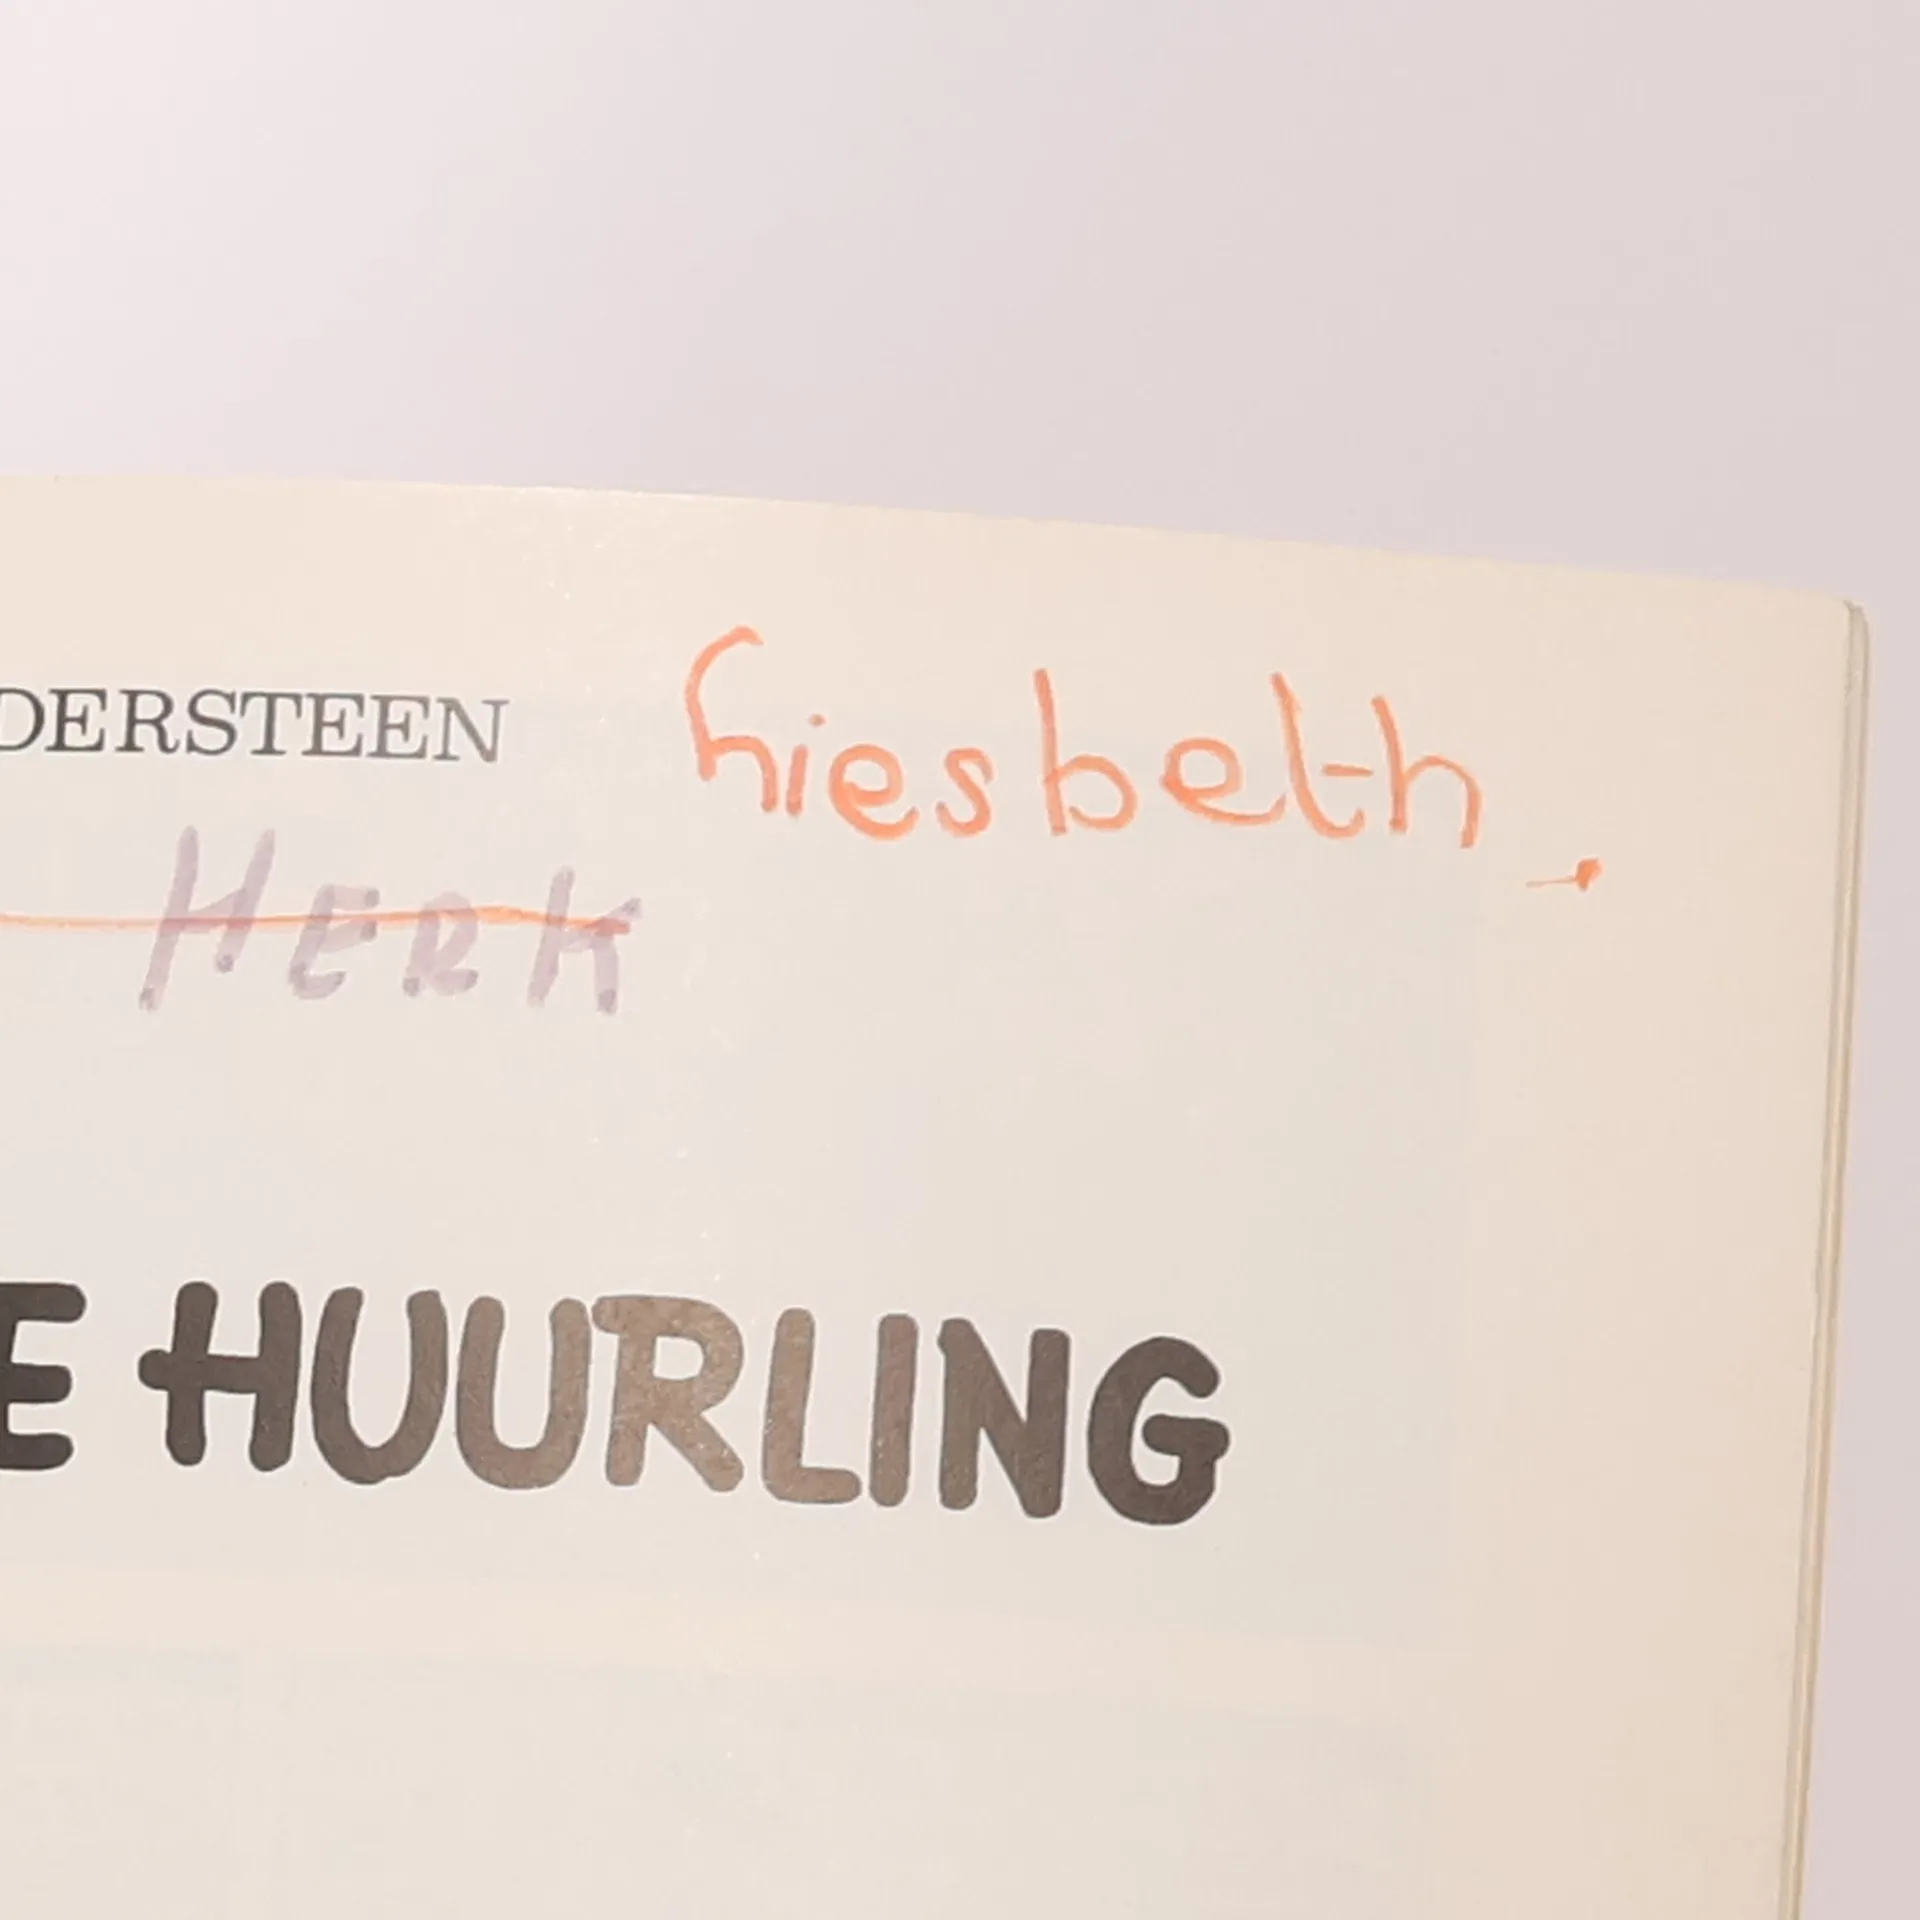 DERSTEEN
Liesbeth.
HERK
E HUURLING